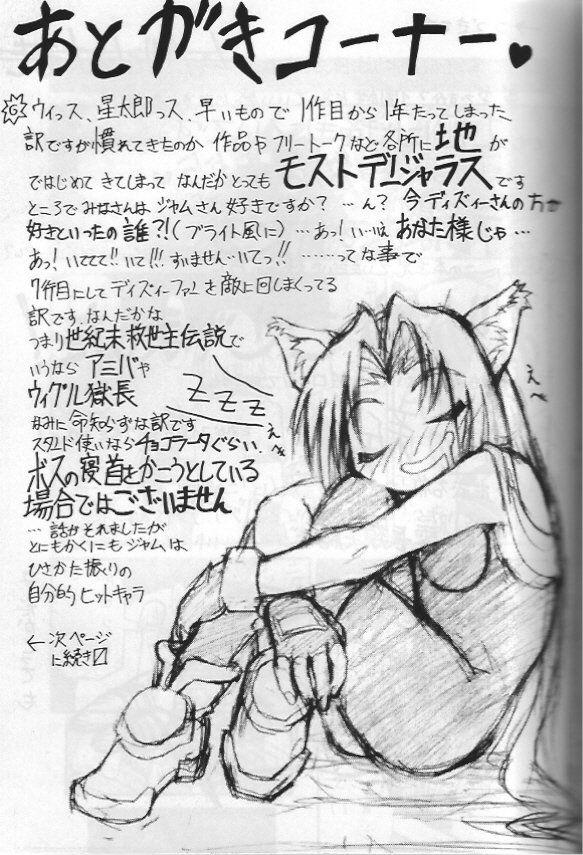 あとがきコーナー♥
ウィっス、星太郎っス、早いもので1作目から1年たってしまった
訳ですが慣れてきたのか 作品やフリートークなど各所に地が
ではじめて きてしまって なんだかとっても モストデェンジャラスです
ところでみなさんは ジャムさん好きですか? … ん? 今ディズィーさんの方が
好きといったの誰?!(ブライト風に) … あっ! い…いえ あなた様じゃ …
あっ! いててて!! いて!!! すいません…いてっ!! ……ってな事で
7行目にしてディズィーファンを敵に回しまくってる
訳です、なんだかな
つまり世紀末救世主伝説で
いうなら アミバや
ウィグル獄長
なみに命知らずな訳です
スタンド使いならチョコラータぐらい、
ボスの寝首をかこうとしている
場合ではございません
… 話がそれましたが
とにもかくにもジャムは
ひさかた振りの
自分的ヒットキャラ
←次ページ
に続き
ZZZ